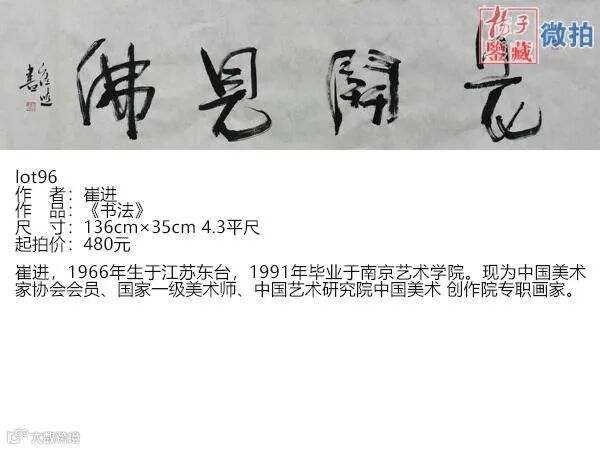 花開見佛
崔進書
揚子
鑒藏
微拍
lot96
作 者：崔进
作 品：《书法》
尺 寸：136cm×35cm 4.3平尺
起拍价：480元
崔进，1966年生于江苏东台，1991年毕业于南京艺术学院。现为中国美术
家协会会员、国家一级美术师、中国艺术研究院中国美术 创作院专职画家。
大数跨境